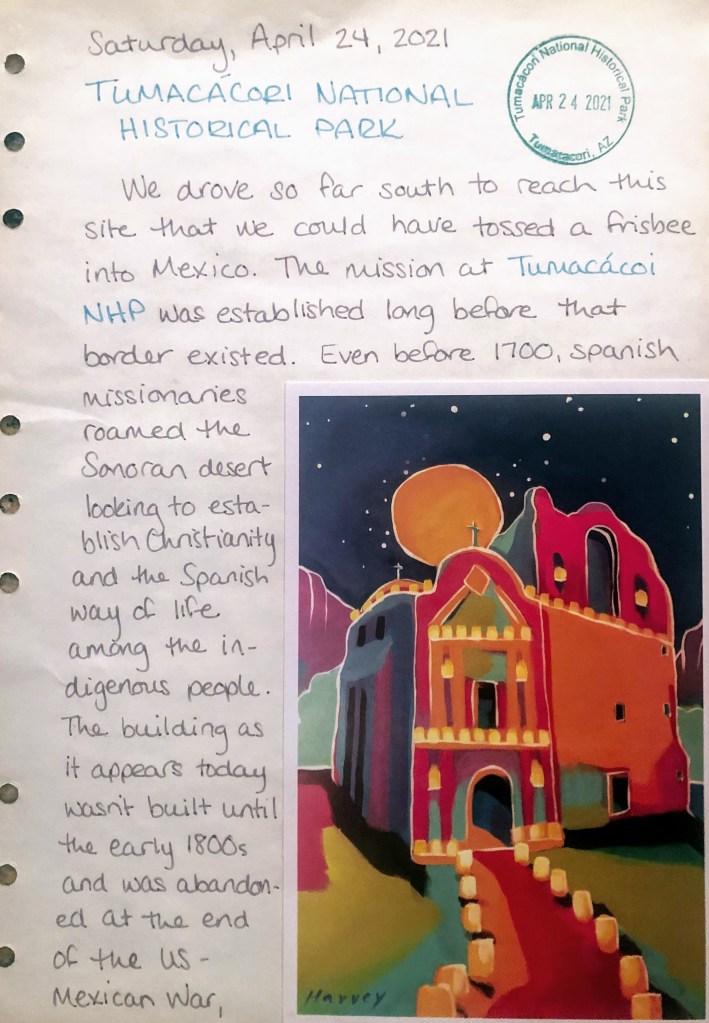 Saturday, April 24, 2021
Tumacácori National Historical Park
APR 24 2021
Tumacacori, AZ
TUMACÁCORI NATIONAL
HISTORICAL PARK
We drove so far south to reach this
site that we could have tossed a frisbee
into Mexico. The mission at Tumacácoi
NHP was established long before that
border existed. Even before 1700, spanish
missionaries
roamed the
Sonoran desert
looking to esta-
blish Christianity
and the Spanish
way of life
among the in-
digenous people.
The building as
it appears today
wasn't built until
the early 1800s
and was abandon-
ed at the end
of the US-
Mexican War,
Harvey